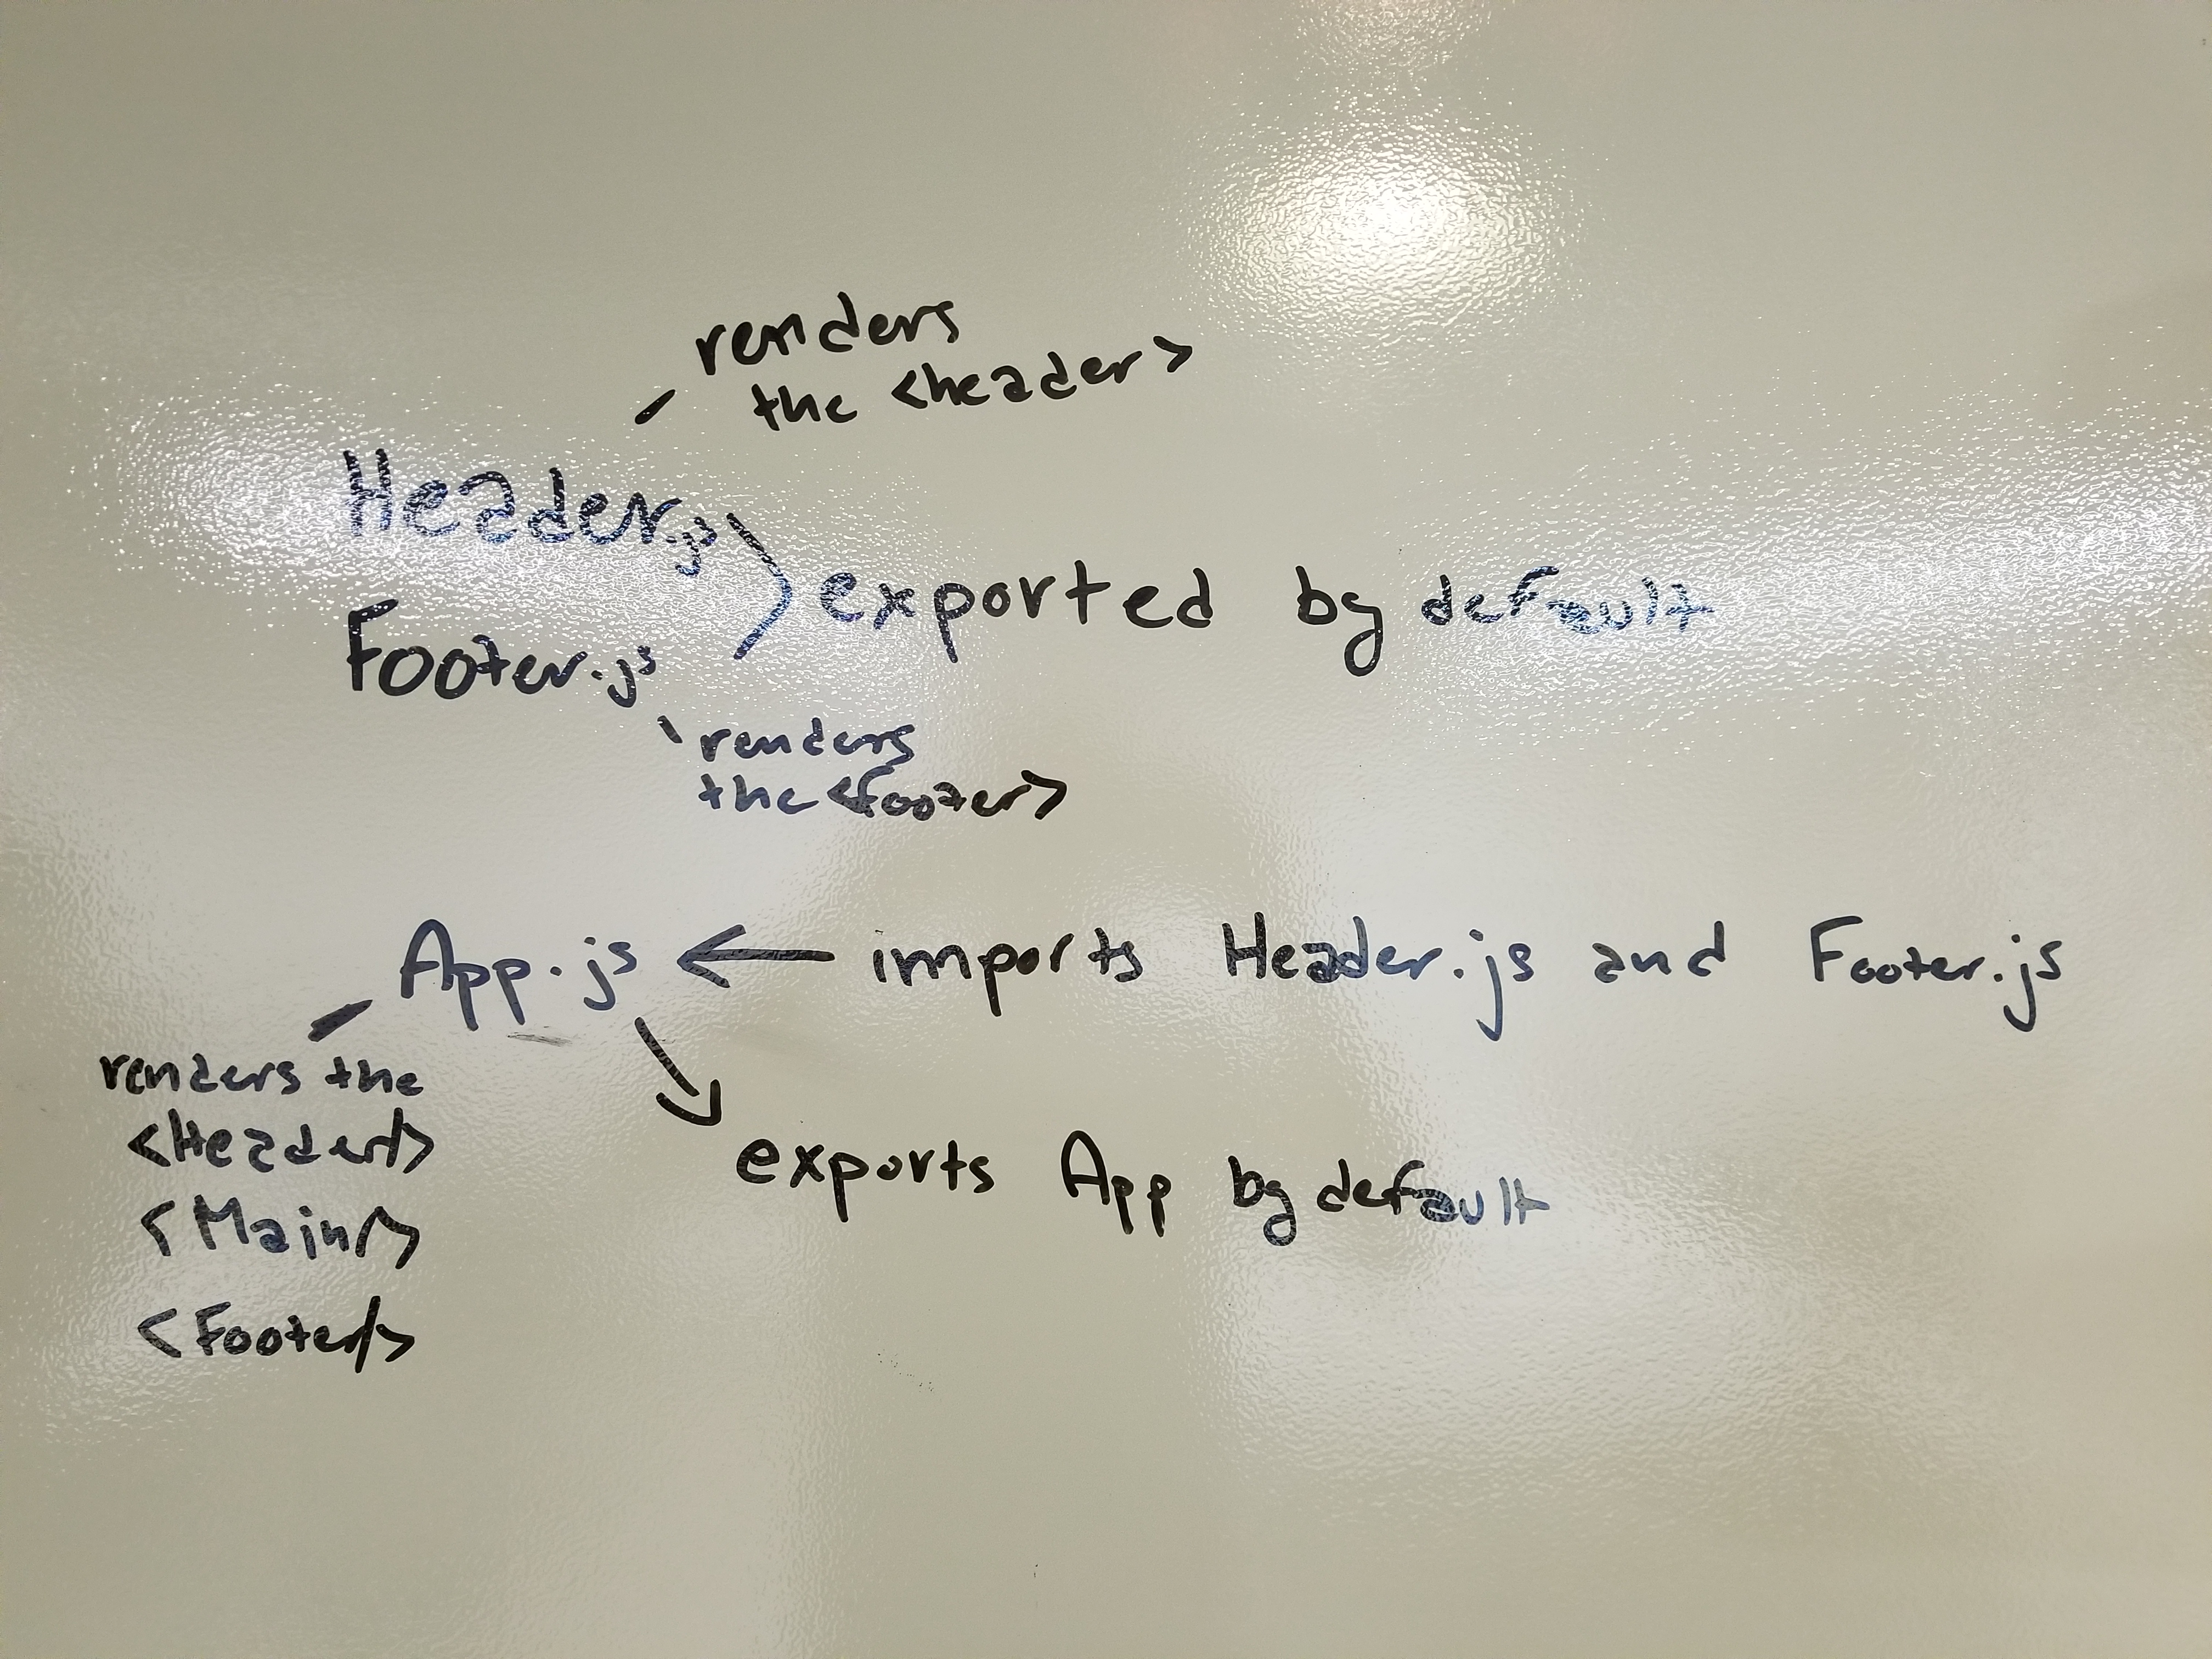 renders
the <header>
Header.js
exported by default
Footer.js
renders
the <footer>
App.js ← imports Header.js and Footer.js
renders the
<Header/>
<Main/>
<Footer/>
exports App by default